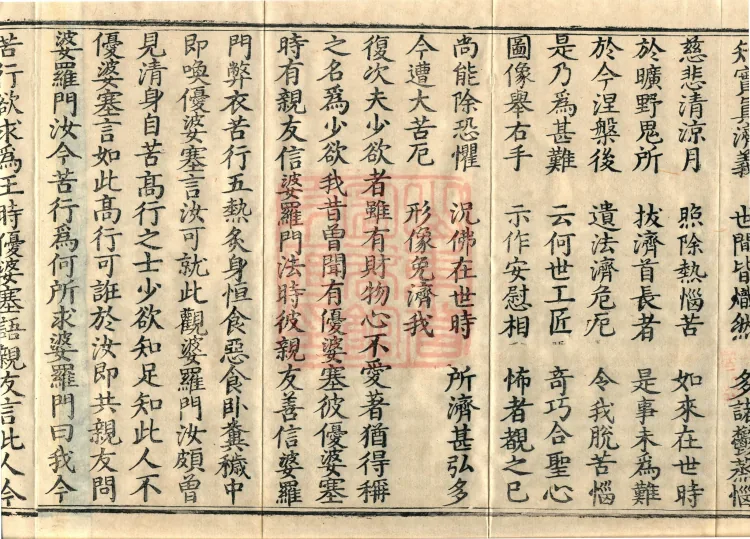 實真濟義　世間皆熾然　多諸鬱蒸惱
慈悲清涼月　照除熱惱苦　如來在世時
於曠野鬼所　拔濟首長者　是事未爲難
於今涅槃後　遺法濟危厄　令我脫苦惱
是乃爲甚難　云何世工匠　奇巧合聖心
圖像舉右手　示作安慰相　怖者覩之已
尚能除恐懼　況佛在世時　所濟甚弘多
今遭大苦厄　形像免濟我
復次夫少欲者雖有財物心不愛著猶得稱
之名爲少欲我昔曾聞有優婆塞彼優婆塞
時有親友信婆羅門法時彼親友善信婆羅
門弊衣苦行五熱炙身恒食惡食卧糞穢中
即喚優婆塞言汝可就此觀婆羅門汝頗曾
見清身自苦髙行之士少欲知足知此人不
優婆塞言如此髙行可誑於汝即共親友問
婆羅門汝今苦行爲何所求婆羅門曰我今
苦行欲求爲王時優婆塞語親友言此人今